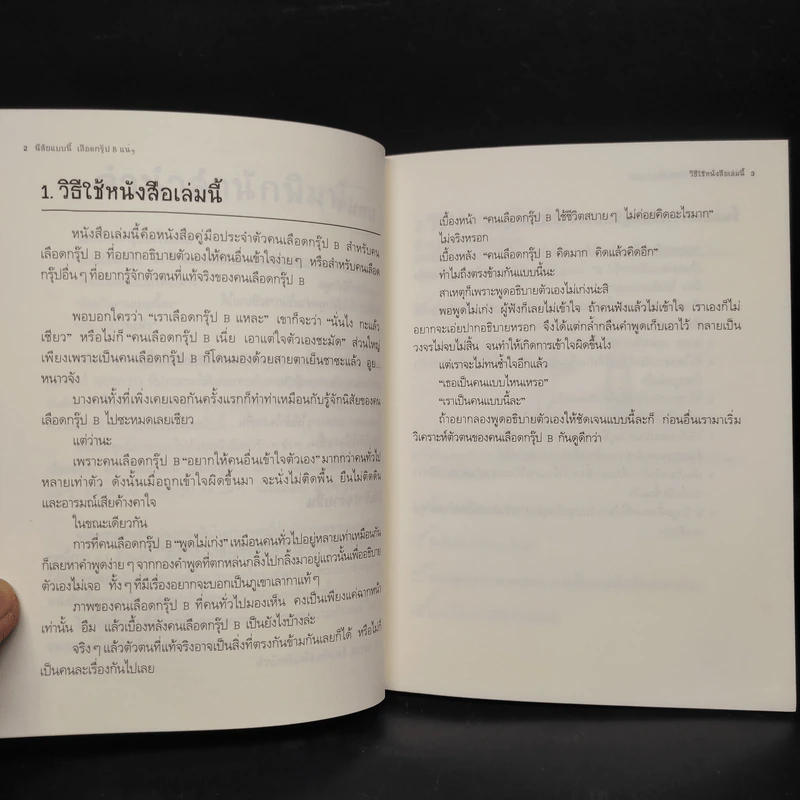 2 นิสัยแบบนี้ เลือดกรุ๊ป B แน่ๆ
1. วิธีใช้หนังสือเล่มนี้
หนังสือเล่มนี้คือหนังสือคู่มือประจำตัวคนเลือดกรุ๊ป B สำหรับคน
เลือดกรุ๊ป B ที่อยากอธิบายตัวเองให้คนอื่นเข้าใจง่ายๆ หรือสำหรับคนเลือด
กรุ๊ปอื่นๆ ที่อยากรู้จักตัวตนที่แท้จริงของคนเลือดกรุ๊ป B
พอบอกใครว่า "เราเลือดกรุ๊ป B แหละ" เขาก็จะว่า "นั่นไง กะแล้ว
เชียว" หรือไม่ก็ "คนเลือดกรุ๊ป B เนี่ย เอาแต่ใจตัวเองชะมัด" ส่วนใหญ่
เพียงเพราะเป็นคนเลือดกรุ๊ป B ก็โดนมองด้วยสายตาเย็นชาซะแล้ว อูย...
หนาวจัง
บางคนทั้งที่เพิ่งเคยเจอกันครั้งแรกก็ทำท่าเหมือนกับรู้จักนิสัยของคน
เลือดกรุ๊ป B ไปซะหมดเลยเชียว
แต่ว่านะ
เพราะคนเลือดกรุ๊ป B "อยากให้คนอื่นเข้าใจตัวเอง" มากกว่าคนทั่วไป
หลายเท่าตัว ดังนั้นเมื่อถูกเข้าใจผิดขึ้นมา จะนั่งไม่ติดพื้น ยืนไม่ติดดิน
และอารมณ์เสียค้างคาใจ
ในขณะเดียวกัน
การที่คนเลือดกรุ๊ป B "พูดไม่เก่ง" เหมือนคนทั่วไปอยู่หลายเท่าเหมือนกัน
ก็เลยหาคำพูดง่ายๆ จากกองคำพูดที่ตกหล่นกลิ้งไปกลิ้งมาอยู่แถวนั้นเพื่ออธิบาย
ตัวเองไม่เจอ ทั้งๆ ที่มีเรื่องอยากจะบอกเป็นภูเขาเลากาแท้ๆ
ภาพของคนเลือดกรุ๊ป B ที่คนทั่วไปมองเห็น คงเป็นเพียงแค่ฉากหน้า
เท่านั้น อืม แล้วเบื้องหลังคนเลือดกรุ๊ป B เป็นยังไงบ้างล่ะ
จริงๆ แล้วตัวตนที่แท้จริงอาจเป็นสิ่งที่ตรงกันข้ามกันเลยก็ได้ หรือไม่ก็
เป็นคนละเรื่องกันไปเลย
วิธีใช้หนังสือเล่มนี้ 3
เบื้องหน้า "คนเลือดกรุ๊ป B ใช้ชีวิตสบายๆ ไม่ค่อยคิดอะไรมาก"
ไม่จริงหรอก
เบื้องหลัง "คนเลือดกรุ๊ป B คิดมาก คิดแล้วคิดอีก"
ทำไมถึงตรงข้ามกันแบบนี้นะ
สาเหตุก็เพราะพูดอธิบายตัวเองไม่เก่งน่ะสิ
พอพูดไม่เก่ง ผู้ฟังก็เลยไม่เข้าใจ ถ้าคนฟังแล้วไม่เข้าใจ เราเองก็ไม่
อยากจะเอ่ยปากอธิบายหรอก จึงได้แต่กล้ำกลืนคำพูดเก็บเอาไว้ กลายเป็น
วงจรไม่จบไม่สิ้น จนทำให้เกิดการเข้าใจผิดขึ้นไง
แต่เราจะไม่ทนช้ำใจอีกแล้ว
"เธอเป็นคนแบบไหนเหรอ"
"เราเป็นคนแบบนี้ละ"
ถ้าอยากลองพูดอธิบายตัวเองให้ชัดเจนแบบนี้ละก็ ก่อนอื่นเรามาเริ่ม
วิเคราะห์ตัวตนของคนเลือดกรุ๊ป B กันดูดีกว่า